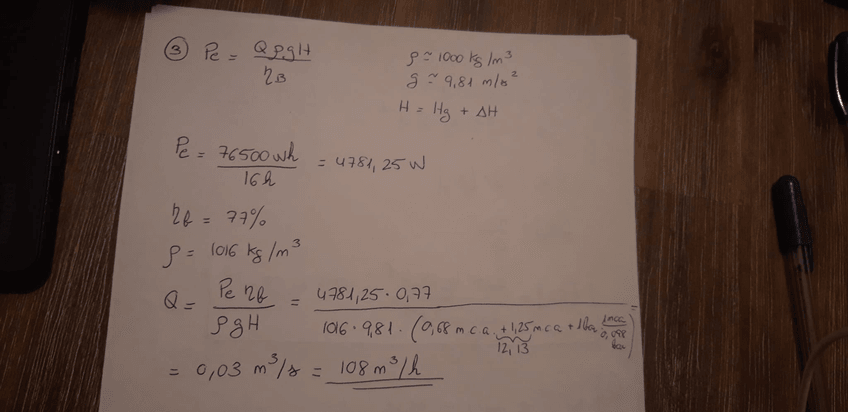 ③ Pe = QρgH / ηB
ρ ≃ 1000 kg/m³
g ≃ 9,81 m/s²
H = Hg + ΔH
Pe = 76500 Wh / 16h = 4781,25 W
ηB = 77%
ρ = 1016 kg/m³
Q = Pe ηB / ρgH = 4781,25 · 0,77 / 1016 · 9,81 · (0,68 m c a + 1,25 m c a + 1 bar 1 mca / 0,098 bar) =
12,13
= 0,03 m³/s = 108 m³/h